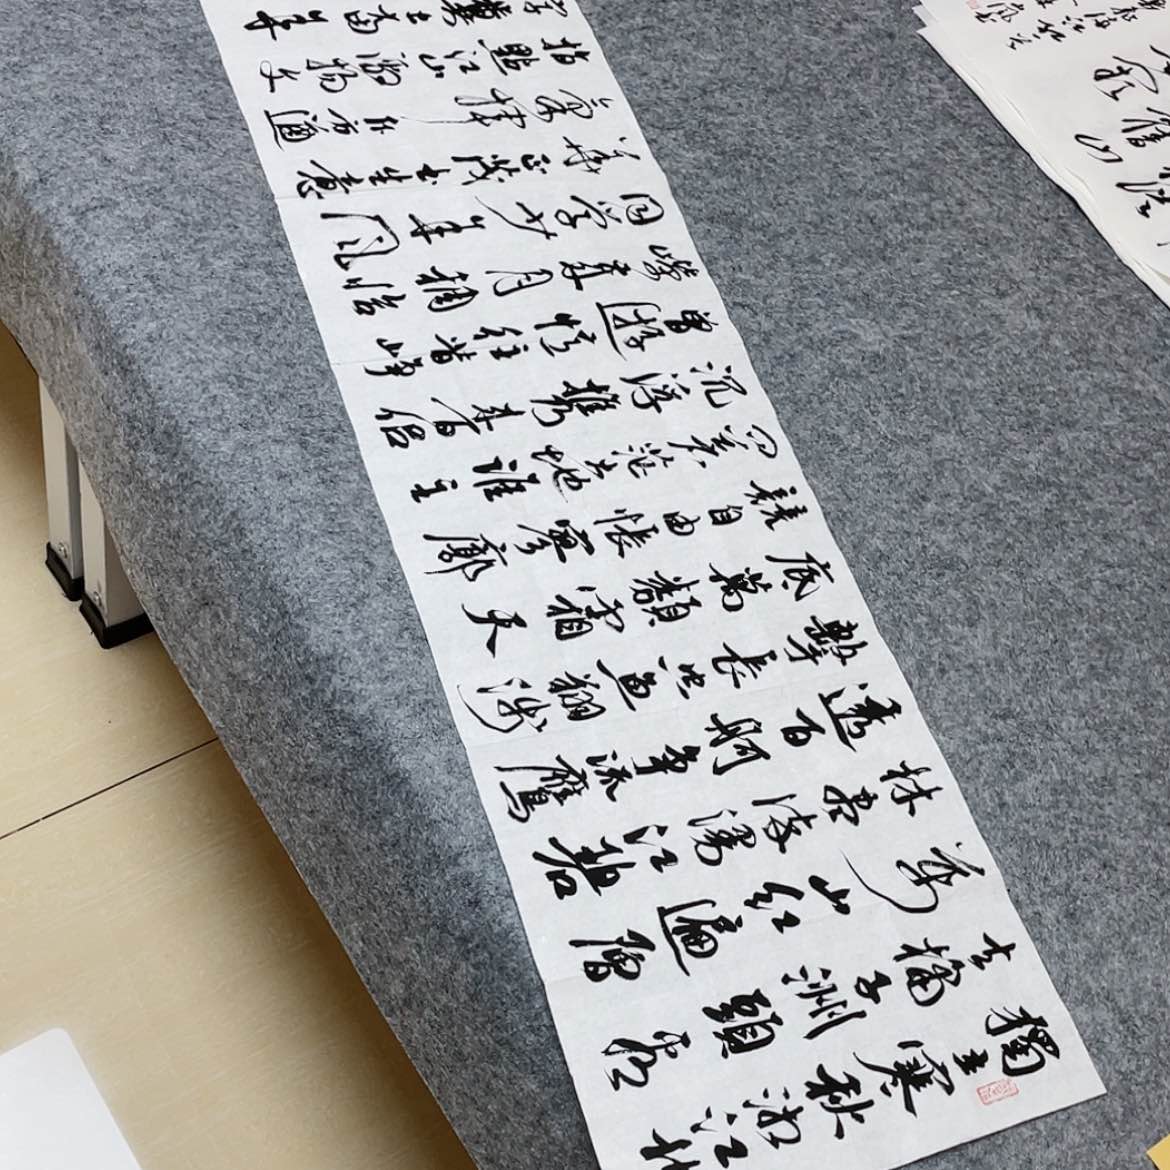 獨立寒秋湘江北
去橘子洲頭看
万山紅遍層
林盡染漫江碧
透百舸爭流鷹
擊長空魚翔淺
底萬類霜天
競自由悵寥廓
問蒼茫大地誰主
沉浮攜來百侶
曾遊憶往昔崢
嶸歲月稠恰
同學少年風
華正茂書生意
氣揮斥方遒
指點江山激揚文
字糞土當年